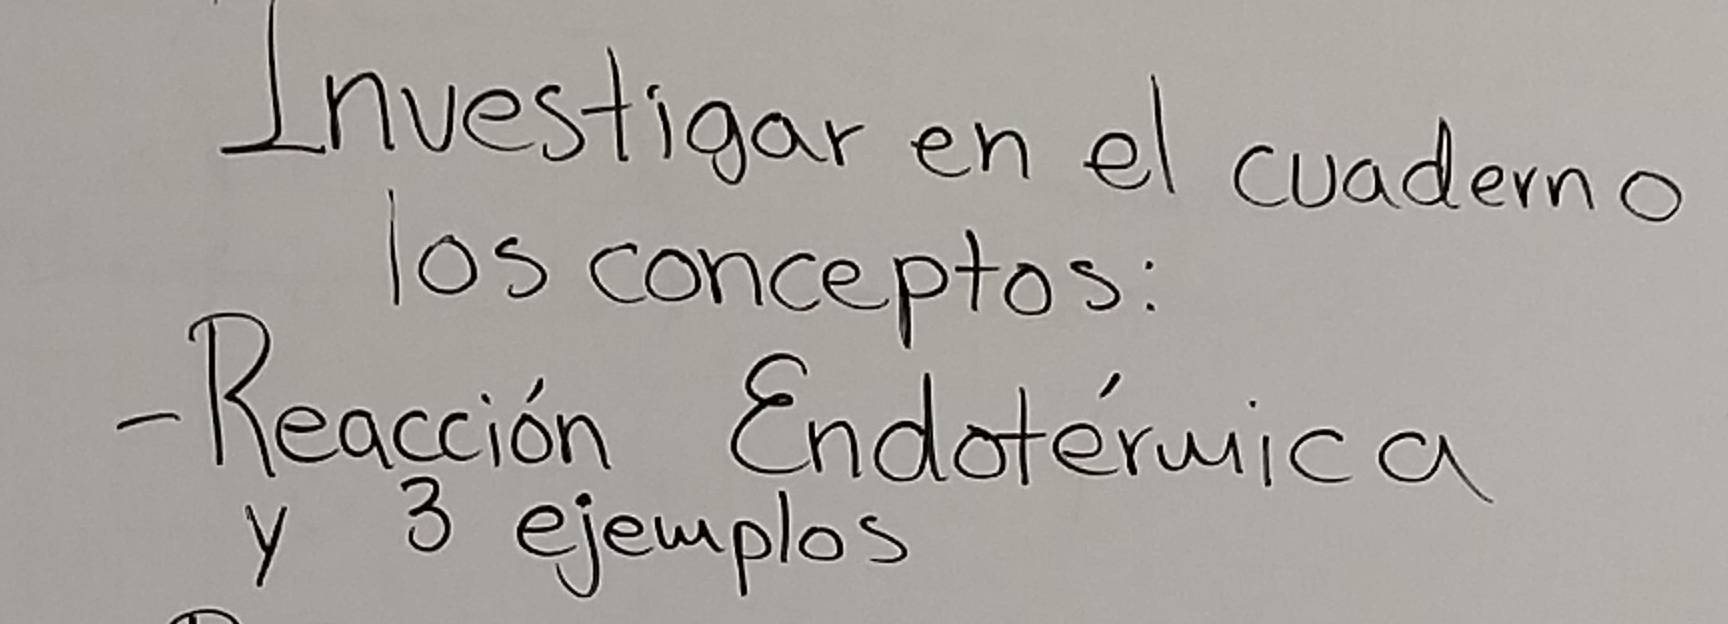 Investigar en el cuaderno
los conceptos:
- Reacción Endotérmica
y 3 ejemplos